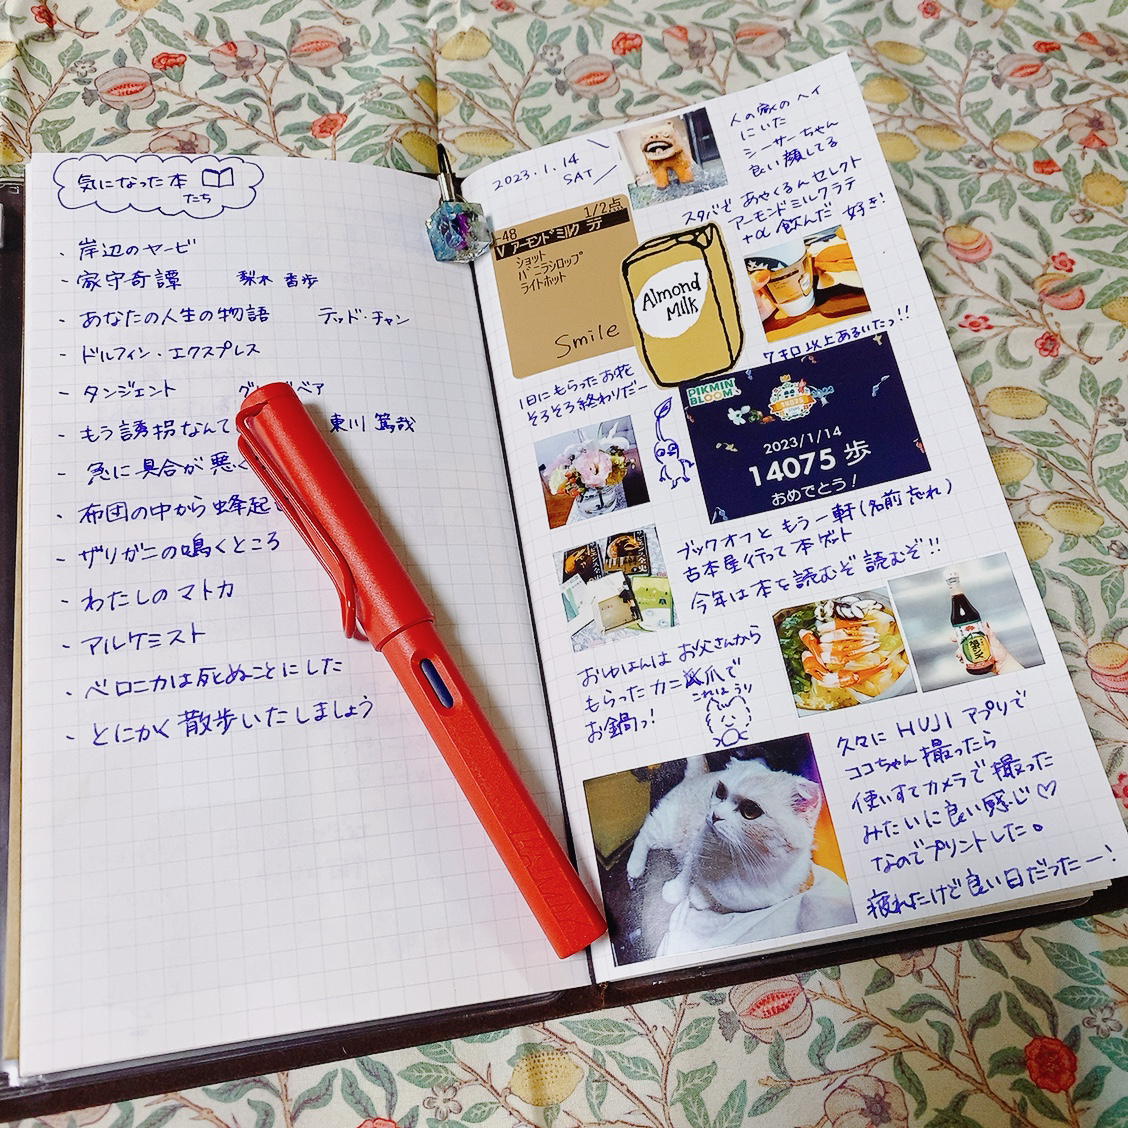 気になった本
たち
・岸辺のヤービ
・家守奇譚 梨木 香歩
・あなたの人生の物語 テッド・チャン
・ドルフィン・エクスプレス
・タンジェント
・もう誘拐なんて 東川 篤哉
・急に具合が悪く
・布団の中から蜂起
・ザリガニの鳴くところ
・わたしのマトカ
・アルケミスト
・ベロニカは死ぬことにした
・とにかく散歩いたしましょう
2023.1.14
SAT
人の家のヘイ
にいた
シーサーちゃん
良い顔してる
スタバで あやくるんセレクト
アーモンドミルクラテ
+α 飲んだ 好き!
1/2点
-48
アーモンドミルク ラテ
ショット
バニラシロップ
ライトホット
Smile
Almond
Milk
7キロ以上あるいたっ!!
1日にもらったお花
そろそろ終わりだー
PIKMIN
BLOOM
2023/1/14
14075 歩
おめでとう!
ブックオフと もう一軒(名前忘れ)
古本屋行って本ゲット
今年は本を読むぞ 読むぞ!!
おゆはんは お父さんから
もらったカニ爪で
お鍋っ!
これはうり
久々に HUJI アプリで
ココちゃん撮ったら
使いすてカメラで撮った
みたいに良い感じ♡
なのでプリントした。
疲れたけど良い日だったー!
LAMY